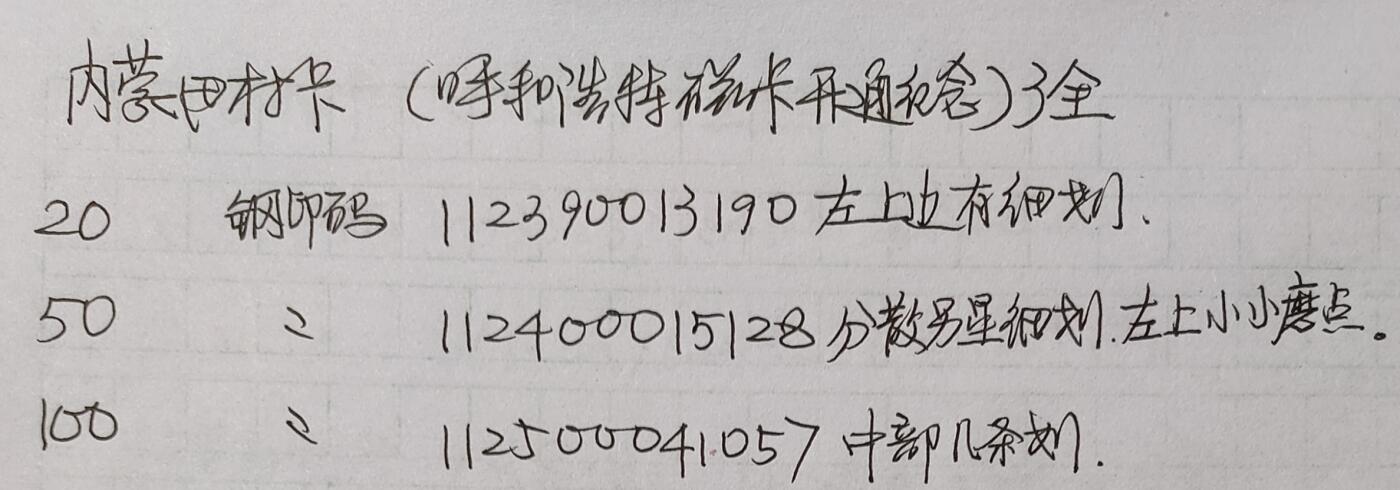 内蒙田村卡 (呼和浩特磁卡开通纪念)3全
20 钢印码 112390013190 左上边有细划.
50 〃 112400015128 分散另星细划.左上小小磨点。
100 〃 112500041057 中部几条划.